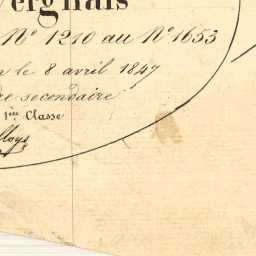 ergnais
Nº 1210 au Nº 1653
n le 8 avril 1847
re secondaire
1ère Classe